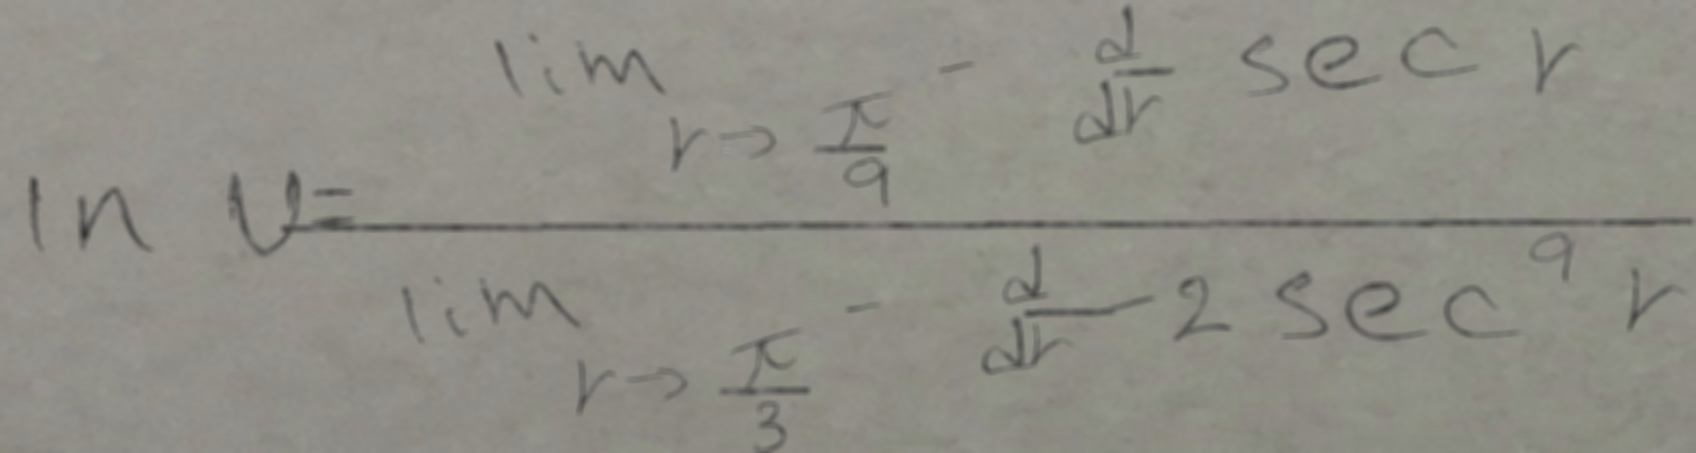 \ln v = \frac{\lim_{r \to \frac{\pi}{9}^-} \frac{d}{dr} \sec r}{\lim_{r \to \frac{\pi}{3}^-} \frac{d}{dr} - 2 \sec^9 r}